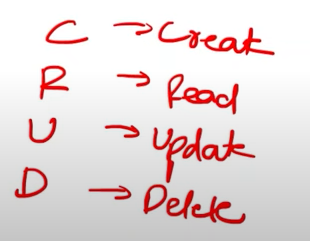 C → Create
R → Read
U → Update
D → Delete